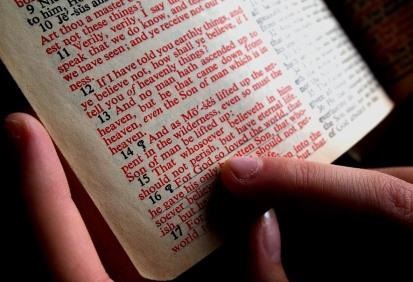 9
to him,
10 Je´sus an
Art thou a master o
est not these things?
11 Verily, verily, I say
speak that we do know, and tes
we have seen; and ye receive not our
ness.
12 If I have told you earthly things, and
ye believe not, how shall ye believe, if I
tell you of heavenly things?
13 And no man hath ascended up to
heaven, but he that came down from
heaven, even the Son of man which is in
14 ¶ And as Mo´ses lifted up the ser-
pent in the wilderness, even so must the
Son of man be lifted up:
15 That whosoever believeth in him
should not perish, but have eternal life.
16 ¶ For God so loved the world, that
he gave his Son, that
soever should not per-
ish, but
17 For into the
world but that